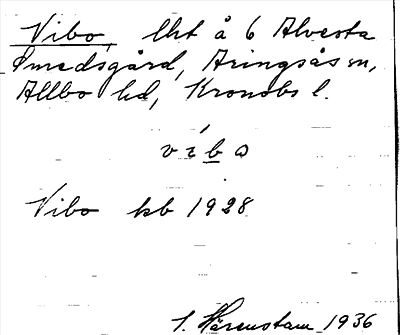 Vibo, lht å 6 Alvesta
Smedsgård, Aringsås sn,
Allbo hd, Kronobs l.
víbo
Vibo kb 1928
Härenstam 1936